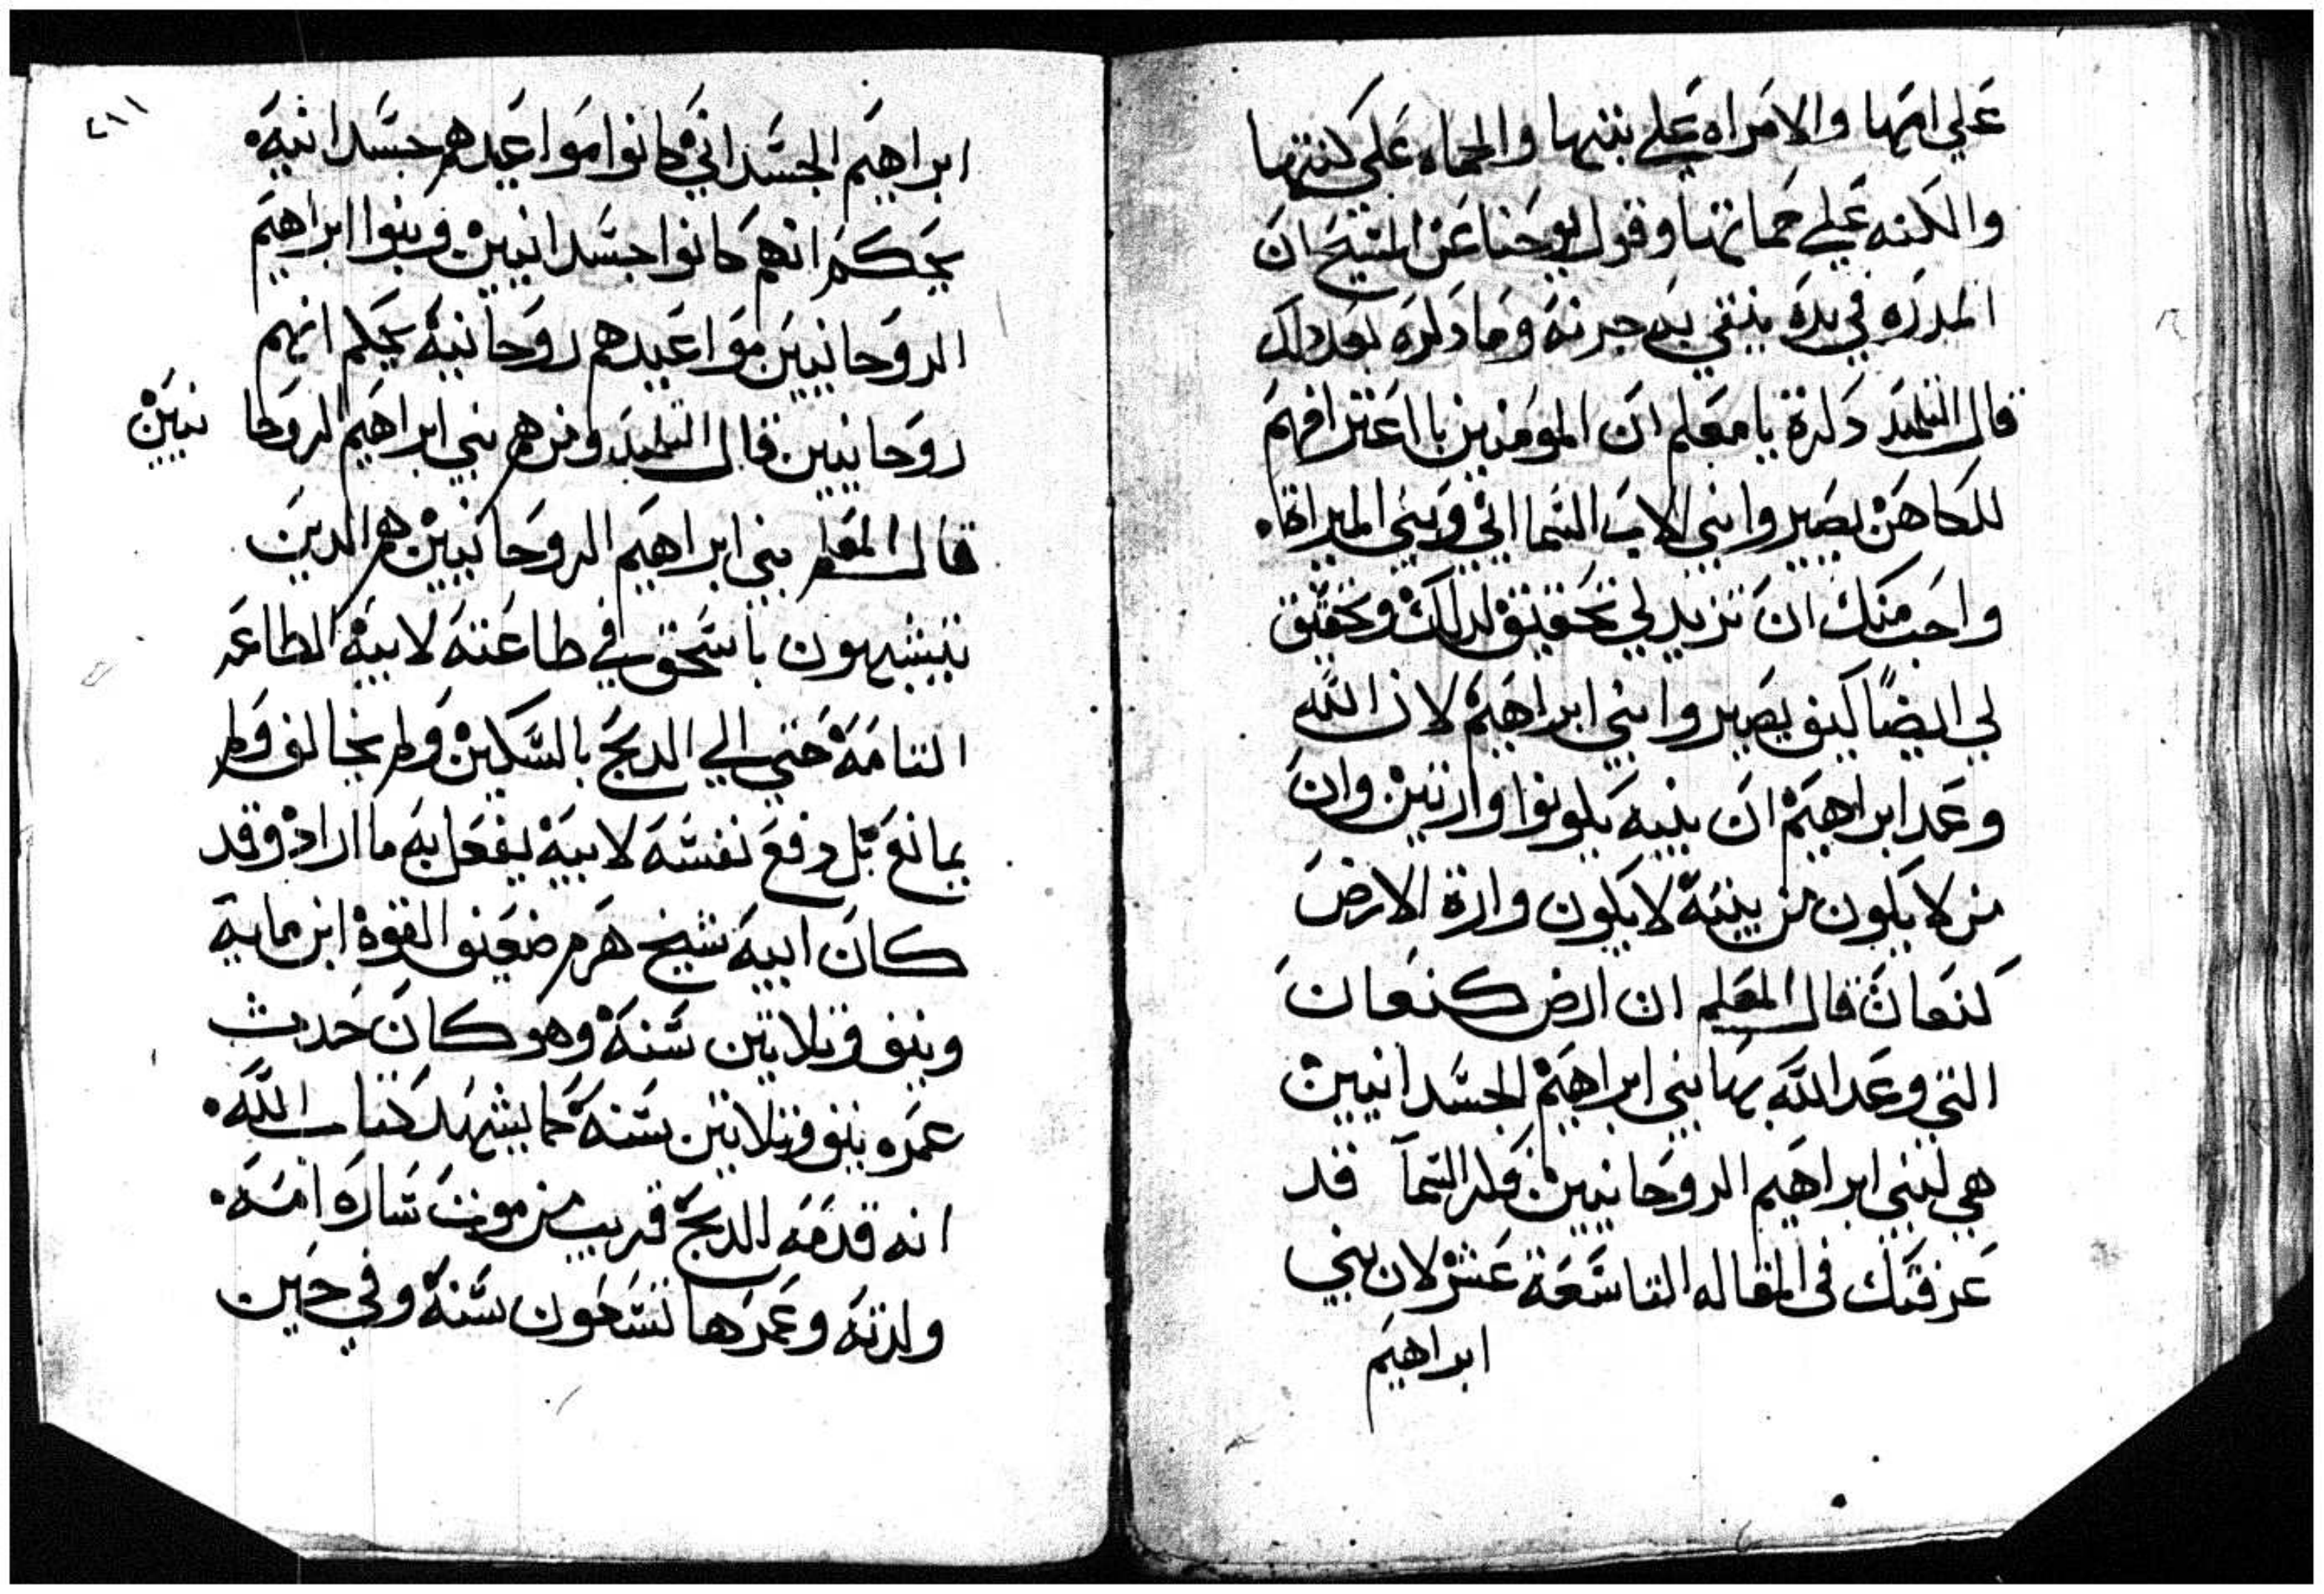 علي امها والامراه علي بنتها والحماه علي كنتها
والكنه علي حماتها وقول يوحنا عن المسيح ان
المدره في يده ينقي بها جرنه وما دكره بعد دلك
قال التلميد دكرة يا معلم ان المومنين بااعترافهم
للكاهن يصيروا بني الاب السمااني وبني الميراة
واحب منك ان تزيد لي تحقيق لدلك وتحقق
لي ايضًا كيف يصيروا بني ابراهيم لان الله
وعد ابراهيم ان بنيه يكونوا وارتين وان
من لا يكون من بنيه لا يكون وارة الارض
كنعان قال المعلم ان ارض كنعان
التي وعد الله بها بني ابراهيم الجسدانيين
هي لبني ابراهيم الروحانيين ملك السمآ قد
عرفتك في المقاله التاسعة عشر لان بني
ابراهيم
٢١١
ابراهيم الجسداني كانوا مواعيدهم جسدانيه
بحكم انهم كانوا جسدانيين وبنوا ابراهيم
الروحانيين مواعيدهم روحانية بحكم انهم
روحانيين قال التلميد ومن هم بني ابراهيم الروحا نيين
قال المعلم بني ابراهيم الروحانيين هم الدين
يتشبهون باسحق في طاعته لابيه الطاعه
التامه حتي الي الدبح بالسكين ولم يخالف ولم
يمانع بل دفع نفسه لابيه ليفعل به ما اراد وقد
كان ابيه شيخ هرم ضعيف القوة ابن مايه
ونيف وتلاتين سنة وهو كان حدث
عمره نيف وتلاتين سنة كما يشهد كتاب الله
انه قدمه الدبح قريب من موت ساره امه
ولدته وعمرها تسعون سنة وفي حين